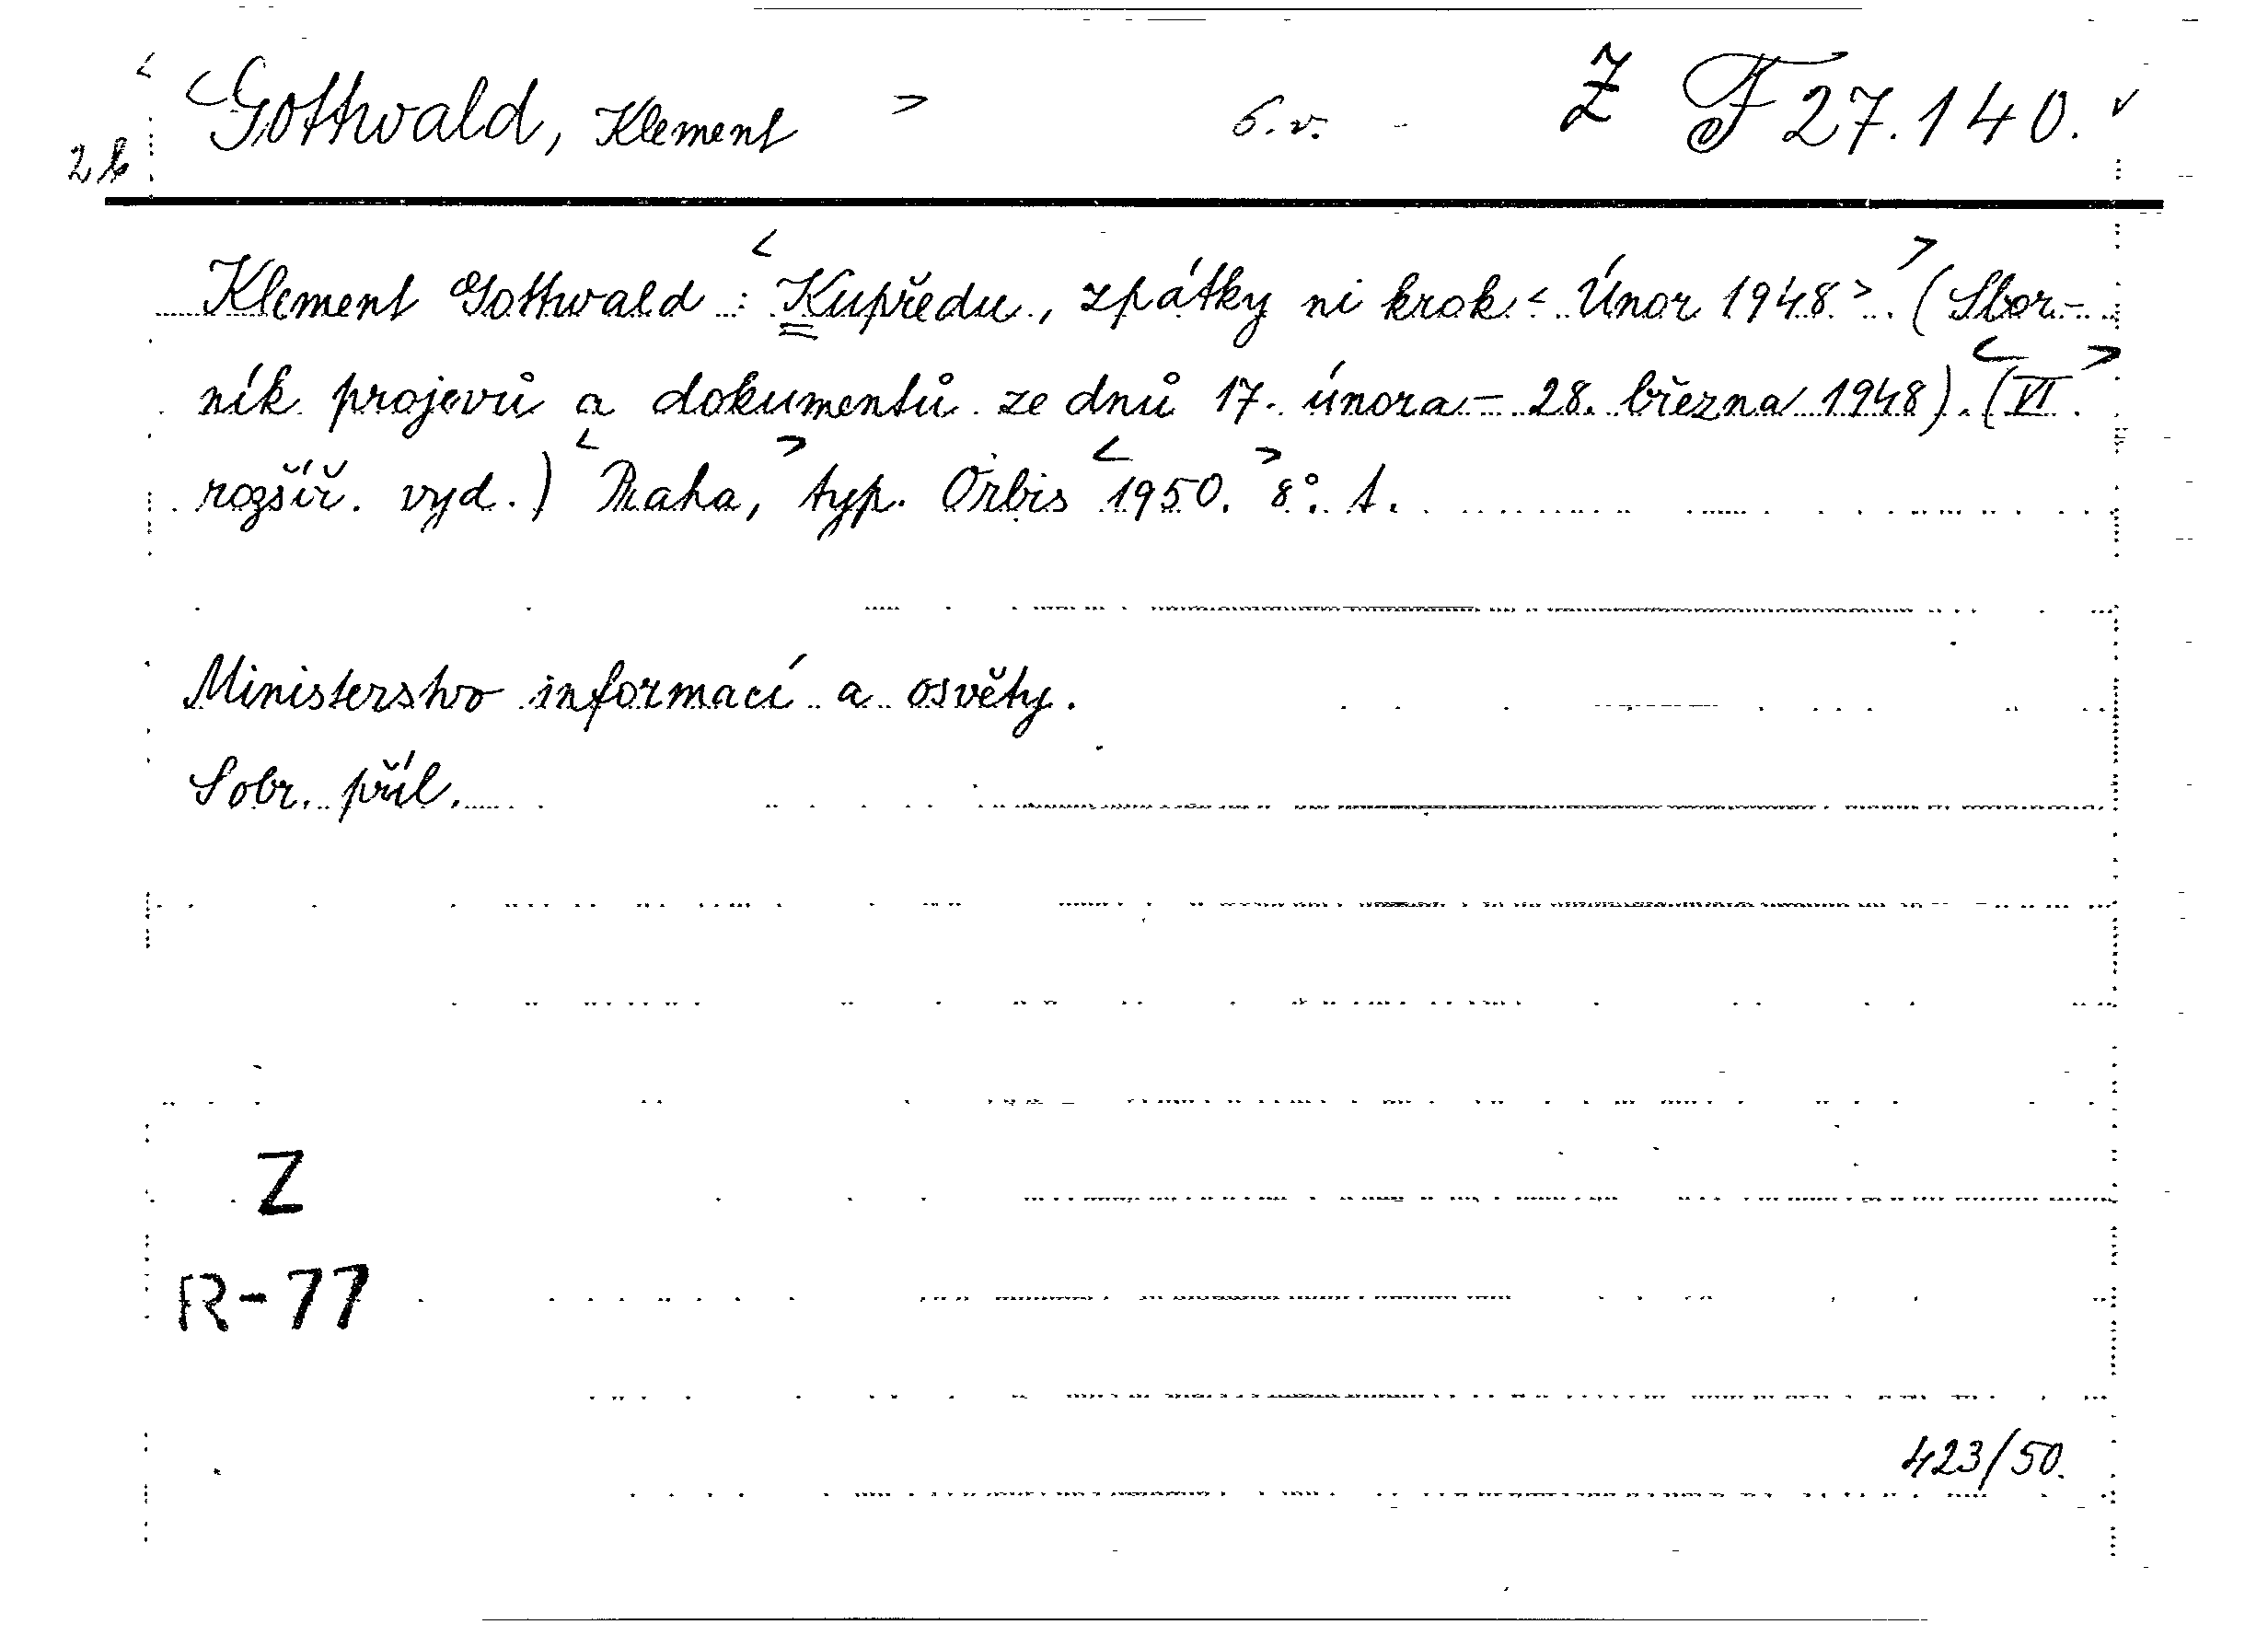 < Gottwald, Klement > 6. v. - Ž F 27.140. v
2b
Klement Gottwald : < Kupředu, zpátky ni krok < Únor 1948 > . > (Sbor-
ník projevů a dokumentů ze dnů 17. února - 28. března 1948). < (VI. >
rozšíř. vyd.) < Praha, > typ. Orbis < 1950. > 8°. 1.
Ministerstvo informací a osvěty.
Sobr. příl.
Z
R-77
423/50.